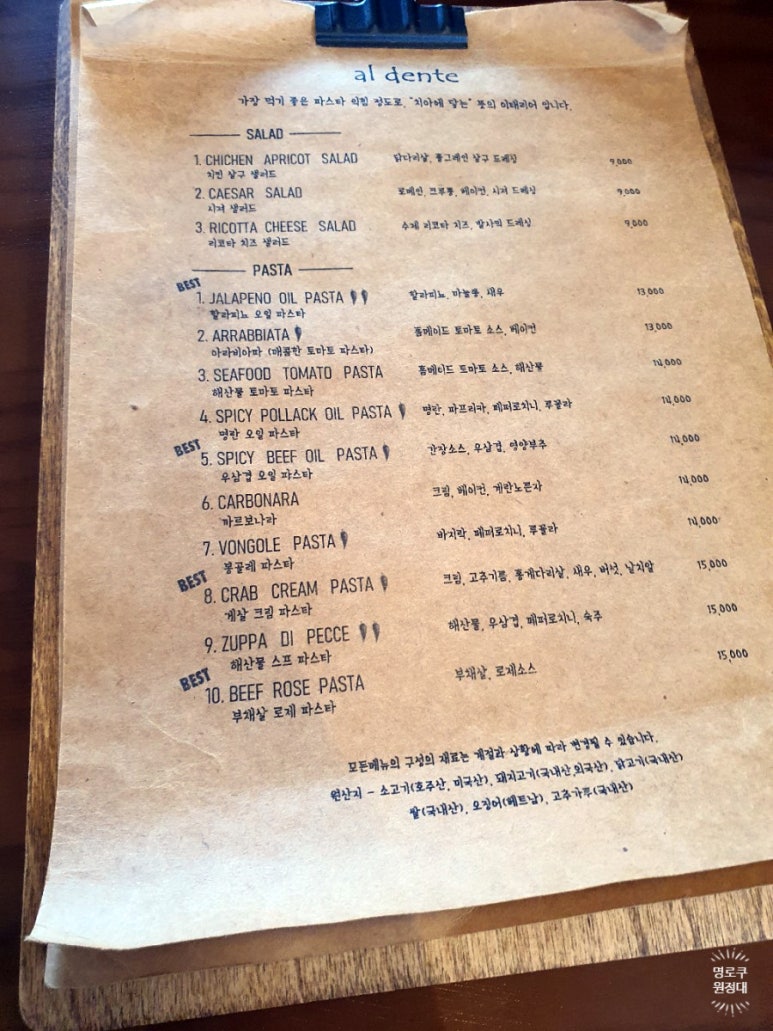 al dente
가장 먹기 좋은 파스타 익힘 정도로, "치아에 닿는" 뜻의 이태리어 입니다.
SALAD
1. CHICHEN APRICOT SALAD 닭다리살, 홀그레인 살구 드레싱 9,000
치킨 살구 샐러드
2. CAESAR SALAD 로메인, 크루통, 베이컨, 시저 드레싱 9,000
시저 샐러드
3. RICOTTA CHEESE SALAD 수제 리코타 치즈, 발사믹 드레싱 9,000
리코타 치즈 샐러드
PASTA
BEST
1. JALAPENO OIL PASTA 할라피뇨, 마늘쫑, 새우 13,000
할라피뇨 오일 파스타
2. ARRABBIATA 홈메이드 토마토 소스, 베이컨 13,000
아라비아따 (매콤한 토마토 파스타)
3. SEAFOOD TOMATO PASTA 홈메이드 토마토 소스, 해산물 14,000
해산물 토마토 파스타
4. SPICY POLLACK OIL PASTA 명란, 파프리카, 페퍼로치니, 루꼴라 14,000
명란 오일 파스타
BEST
5. SPICY BEEF OIL PASTA 간장소스, 우삼겹, 영양부추 14,000
우삼겹 오일 파스타
6. CARBONARA 크림, 베이컨, 계란노른자 14,000
까르보나라
7. VONGOLE PASTA 바지락, 페퍼로치니, 루꼴라 14,000
봉골레 파스타
BEST
8. CRAB CREAM PASTA 크림, 고추기름, 홍게다리살, 새우, 버섯, 날치알 15,000
게살 크림 파스타
9. ZUPPA DI PECCE 해산물, 우삼겹, 페퍼로치니, 숙주 15,000
해산물 스프 파스타
BEST
10. BEEF ROSE PASTA 부채살, 로제소스 15,000
부채살 로제 파스타
모든메뉴의 구성의 재료는 계절과 상황에 따라 변경될 수 있습니다.
원산지 - 소고기(호주산, 미국산), 돼지고기(국내산,외국산), 닭고기(국내산)
쌀(국내산), 오징어(베트남), 고추가루(국내산)
명로쿠
원정대